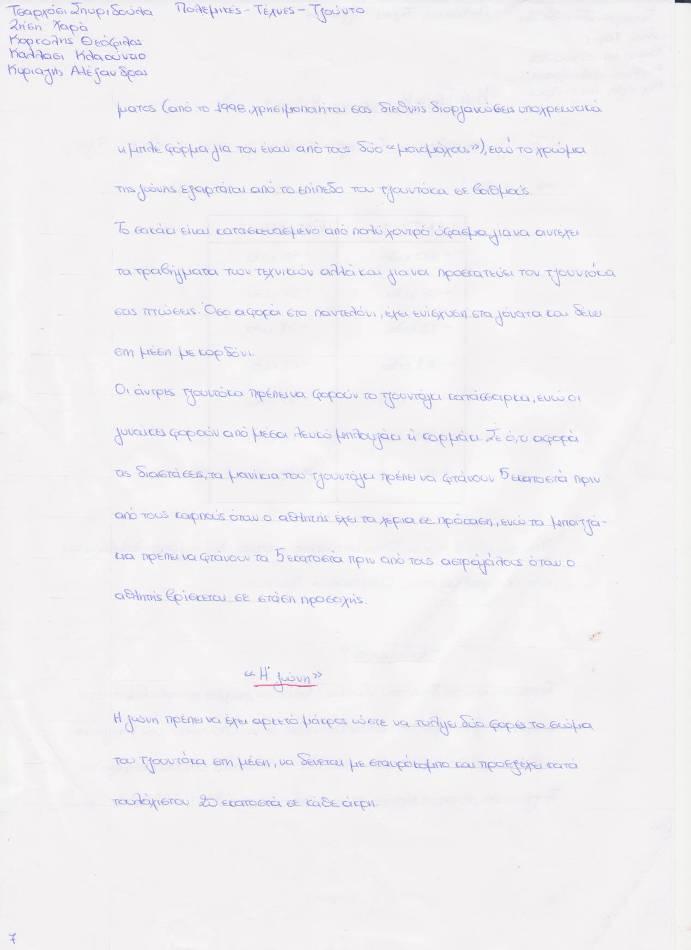 Τσαρχόσι Σπυριδούλα Πολεμικές - Τέχνες - Τζούντο
Ζήση Χαρά
Κορκολής Θεόφιλος
Καλλάσι Κλαούντιο
Κυριαζής Αλέξανδρος
ματος (από το 1998, χρησιμοποιήται σας διεθνής διοργανώσεις υποχρεωτικά
η μπλε φόρμα για τον έναν από τους δύο «μονομάχους»), ενώ το χρώμα
της ζώνης εξαρτάται από το επίπεδο του τζουντόκα σε βαθμούς.
Το σακάκι είναι κατασκευασμένο από πολύ χοντρό ύφασμα, για να αντέχει
τα τραβήγματα των τεχνικών αλλά και για να προστατεύει τον τζουντόκα
σας πτώσεις. Όσο αφορά στο παντελόνι, έχει ενίσχυση στα γόνατα και δένει
στη μέση με κορδόνι.
Οι άντρες τζουντόκα πρέπει να φορούν το τζουντόγκι κατάσαρκα, ενώ οι
γυναίκες φορούν από μέσα λευκό μπλουζάκι ή κορμάκι. Σε ό,τι αφορά
τις διαστάσεις, τα μανίκια του τζουντόγκι πρέπει να φτάνουν 5 εκατοστά πριν
από τους καρπούς όταν ο αθλητής έχει τα χέρια σε πρόταση, ενώ τα μπατζά-
κια πρέπει να φτάνουν τα 5 εκατοστά πριν από τους αστραγάλους όταν ο
αθλητής βρίσκεται σε στάση προσοχής.
«Η ζώνη»
Η ζώνη πρέπει να έχει αρκετό μάκρος ώστε να τυλίγει δύο φορές το σώμα
του τζουντόκα στη μέση, να δένεται με σταυρόκομπο και προεξέχει κατά
τουλάχιστον 20 εκατοστά σε κάθε άκρη.
7